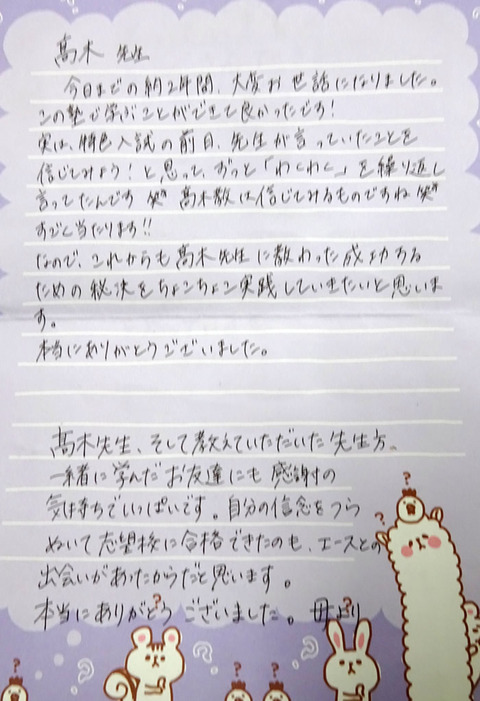 髙木 先生
今日までの約2年間、大変お世話になりました。
この塾で学ぶことができて良かったです!
実は、特色入試の前日、先生が言っていたことを
信じてみよう!と思って、ずっと「わくわく」を繰り返し
言ってたんです 笑 髙木教は信じてみるものですね 笑
すごく当たります!!
なので、これからも髙木先生に教わった成功する
ための秘決をちょこちょこ実践していきたいと思いま
す。
本当にありがとうございました。
髙木先生、そして教えていただいた先生方、
一緒に学んだお友達にも感謝の
気持ちでいっぱいです。自分の信念をつら
ぬいて志望校に合格できたのも、エースとの
出会いがあったからだと思います。
本当にありがとうございました。 母より
? ? ? ? ? ? ?